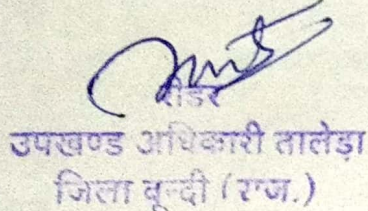 रीडर
उपखण्ड अधिकारी तालेड़ा
जिला बून्दी (राज.)